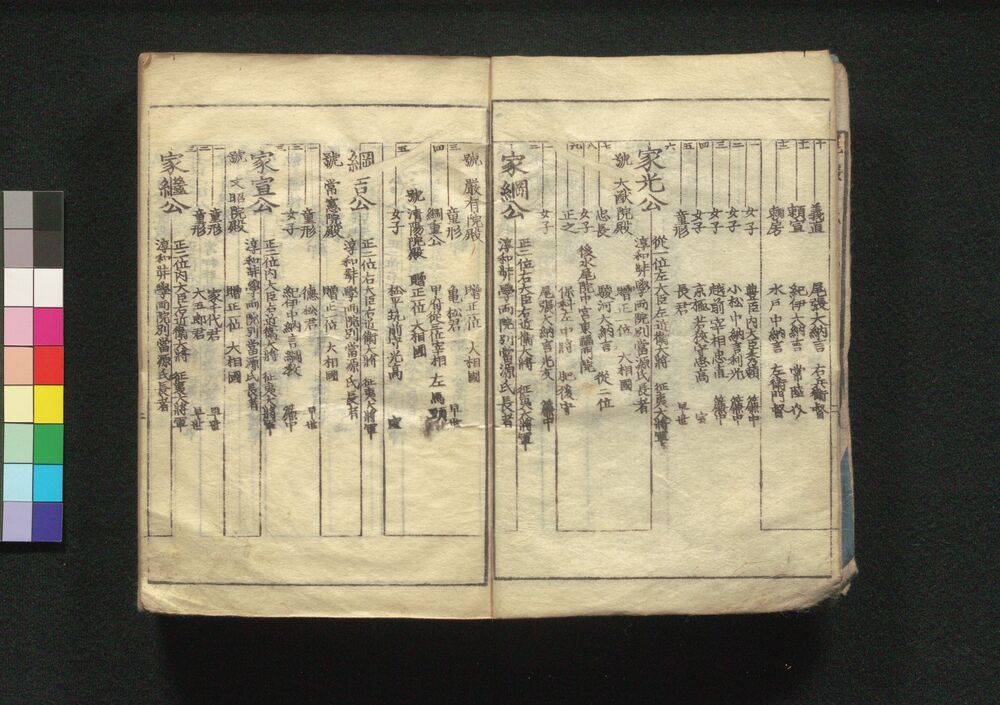 十 義直 尾張大納言 右兵衛督
十一 頼宣 紀伊大納言 常陸介
十二 頼房 水戸中納言 左衛門督
一 女子 豊臣内大臣秀頼 簾中
二 女子 小松中納言利光 簾中
三 女子 越前宰相忠直 簾中
四 女子 京極若狭守忠高 室
五 童形 長君 早世
六 家光公 従一位左大臣左近衛大将 征夷大将軍
淳和奨學両院別當源氏長者
號 大猷院殿 贈正一位 大相國
七 忠長 駿河大納言 従二位
八 後水尾院中宮東福門院
九 正之 保科左中将 肥後守
一 女子 尾張大納言光友 簾中
二 家綱公 正二位右大臣右近衛大将 征夷大将軍
淳和奨學両院別當源氏長者
號 嚴有院殿 贈正一位 大相國
三 童形 亀松君 早世
四 綱重公 甲府従三位宰相 左馬頭
號 清揚院殿 贈正一位 大相國
五 女子 松平筑前守光高 室
綱吉公 正二位右大臣右近衛大将 征夷大将軍
淳和奨學両院別當源氏長者
號 常憲院殿 贈正一位 大相國
一 童形 徳松君 早世
二 女子 紀伊中納言綱教 簾中
三 家宣公 正二位内大臣右近衛大将 征夷大将軍
淳和奨學両院別當源氏長者
號 文昭院殿 贈正一位 大相國
一 童形 家千代君 早世
二 童形 大五郎君 早世
三 家繼公 正二位内大臣右近衛大将 征夷大将軍
淳和奨學両院別當源氏長者